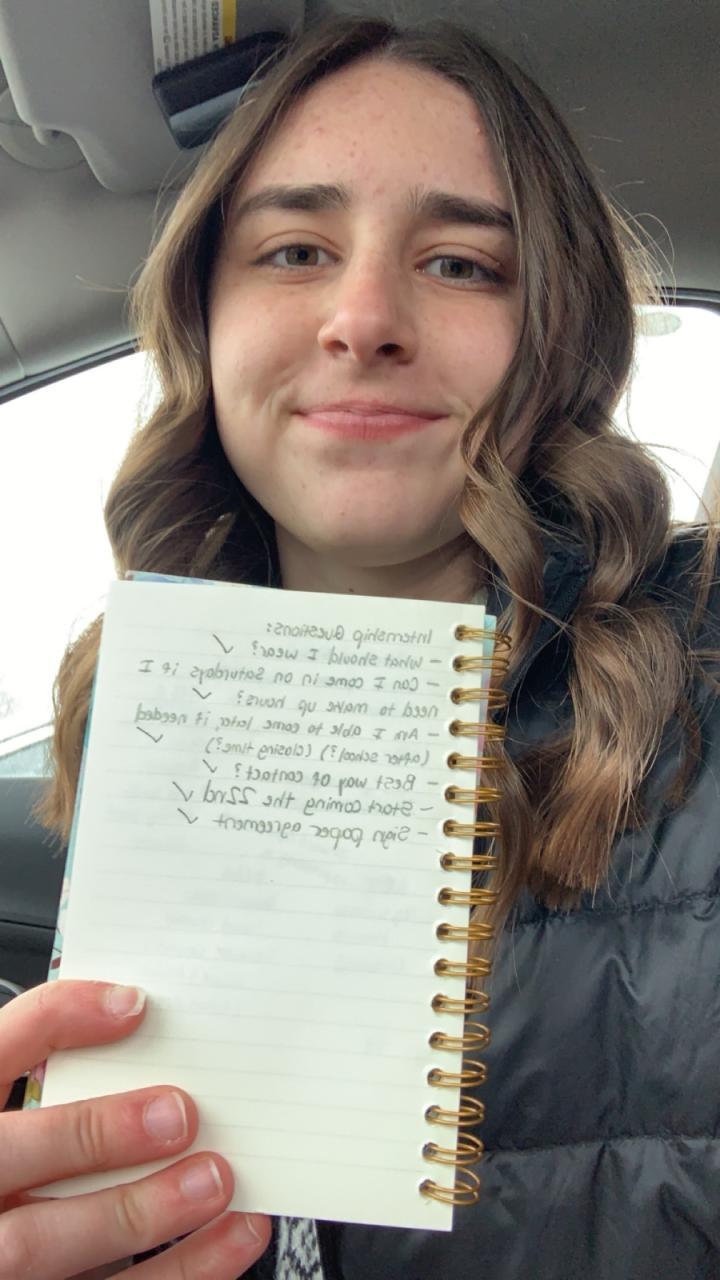 Internship Questions:
- What should I wear? ✓
- Can I come in on Saturdays if I
need to make up hours? ✓
- Am I able to come later, if needed
(after school?) (closing time?) ✓
- Best way of contact? ✓
- Start coming the 22nd ✓
- Sign paper agreement ✓